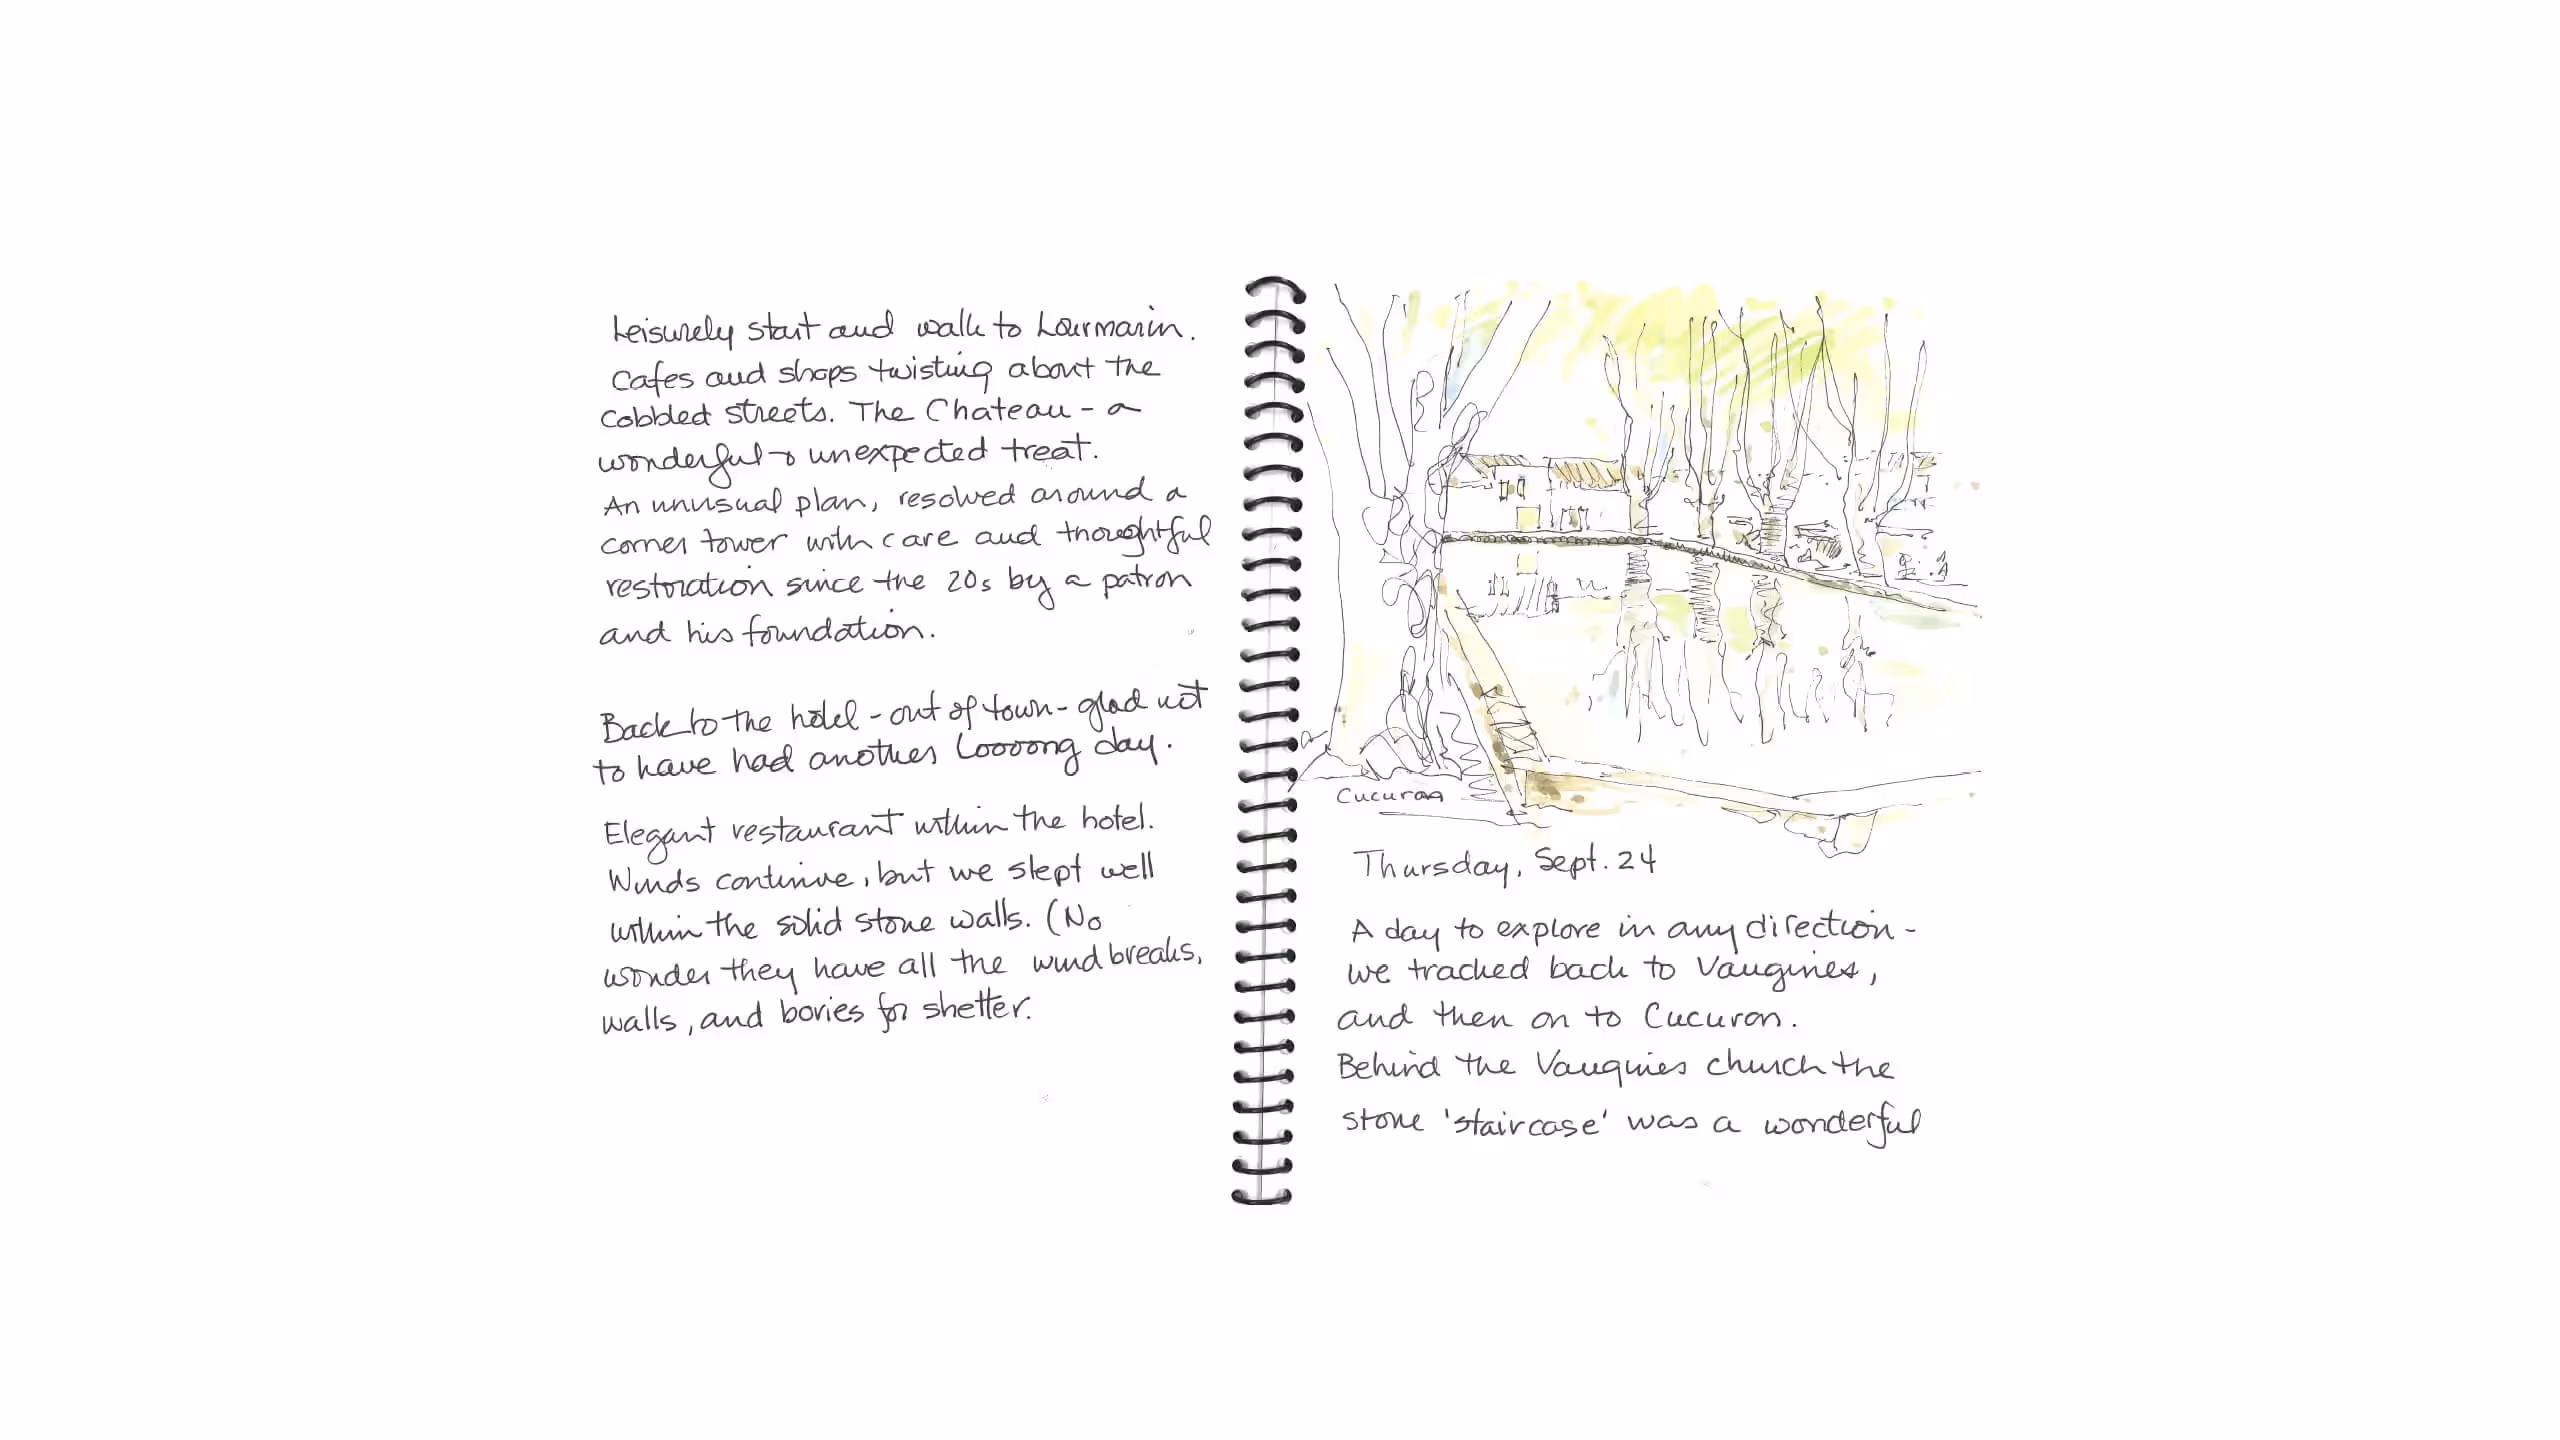 Leisurely start and walk to Lourmarin.
Cafes and shops twisting about the
cobbled streets. The Chateau - a
wonderful & unexpected treat.
An unusual plan, resolved around a
corner tower with care and thoughtful
restoration since the 20s by a patron
and his foundation.
Back to the hotel - out of town - glad not
to have had another Loooong day.
Elegant restaurant within the hotel.
Winds continue, but we slept well
within the solid stone walls. (No
wonder they have all the wind breaks,
walls, and bories for shelter.
Cucuron
Thursday, Sept. 24
A day to explore in any direction -
we tracked back to Vaugines,
and then on to Cucuron.
Behind the Vaugines church the
stone 'staircase' was a wonderful